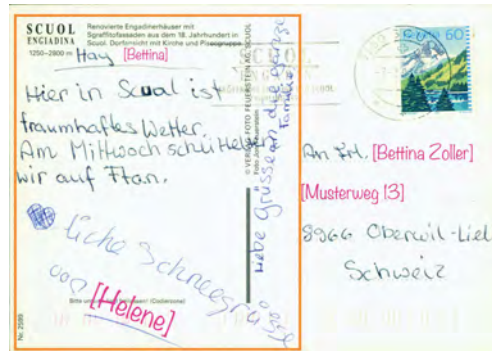 SCUOL
ENGIADINA
1250-2800 m
Renovierte Engadinerhäuser mit
Sgraffitofassaden aus dem 18. Jahrhundert in
Scuol. Dorfansicht mit Kirche und Pisocgruppe
Hay [Bettina]
Hier in Scual ist
traumhaftes Wetter.
Am Mittwoch
wir auf Ftan.
liche Schneegrüsse
von [Helene]
Liebe Grüsse an die ganze
Familie
© VERLAG + FOTO FEUERSTEIN AG, SCUOL
Foto Jon Feuerstein
Nr. 2599
SCUOL
60
An Frl. [Bettina Zoller]
[Musterweg 13]
8966 Oberwil-Lieli
Schweiz